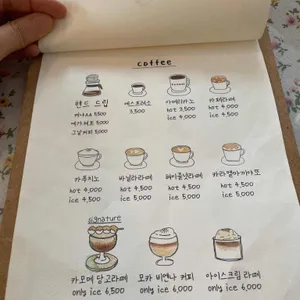 coffee
핸드 드립
케냐AA 5,500
에가체프 5,000
그날커피 5,000
에스프레소
3,500
아메리카노
hot 3,500
ice 4,000
카페라떼
hot 4,000
ice 4,500
카푸치노
hot 4,000
ice 4,500
바닐라라떼
hot 4,500
ice 5,000
헤이즐넛라떼
hot 4,500
ice 5,000
카라멜마끼아또
hot 4,500
ice 5,000
signature
카모메 당고라떼
only ice 6,500
모카 비엔나 커피
only ice 6,000
아이스크림 라떼
only ice 6,000